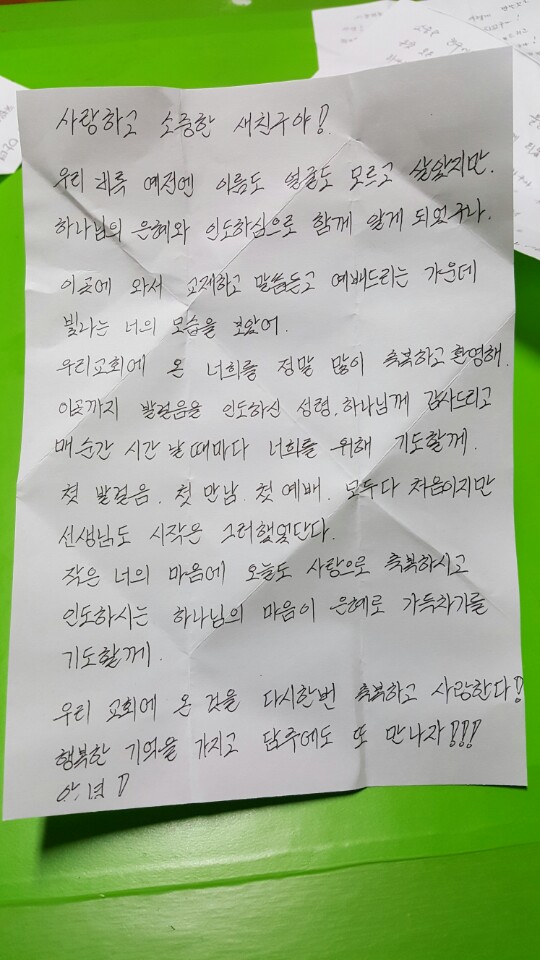 사랑하고 소중한 새친구야!
우리 비록 예전엔 이름도 얼굴도 모르고 살았지만.
하나님의 은혜와 인도하심으로 함께 알게 되었구나.
이곳에 와서 교제하고 말씀듣고 예배드리는 가운데
빛나는 너의 모습을 보았어.
우리교회에 온 너희를 정말 많이 축복하고 환영해.
이곳까지 발걸음을 인도하신 성령.하나님께 감사드리고
매순간 시간 날 때마다 너희를 위해 기도할께.
첫 발걸음. 첫 만남. 첫 예배. 모두다 처음이지만
선생님도 시작은 그러했었단다.
작은 너의 마음에 오늘도 사랑으로 축복하시고
인도하시는 하나님의 마음이 은혜로 가득차기를
기도할께.
우리 교회에 온 것을 다시한번 축복하고 사랑한다!
행복한 기억을 가지고 담주에도 또 만나자!!!
안녕!